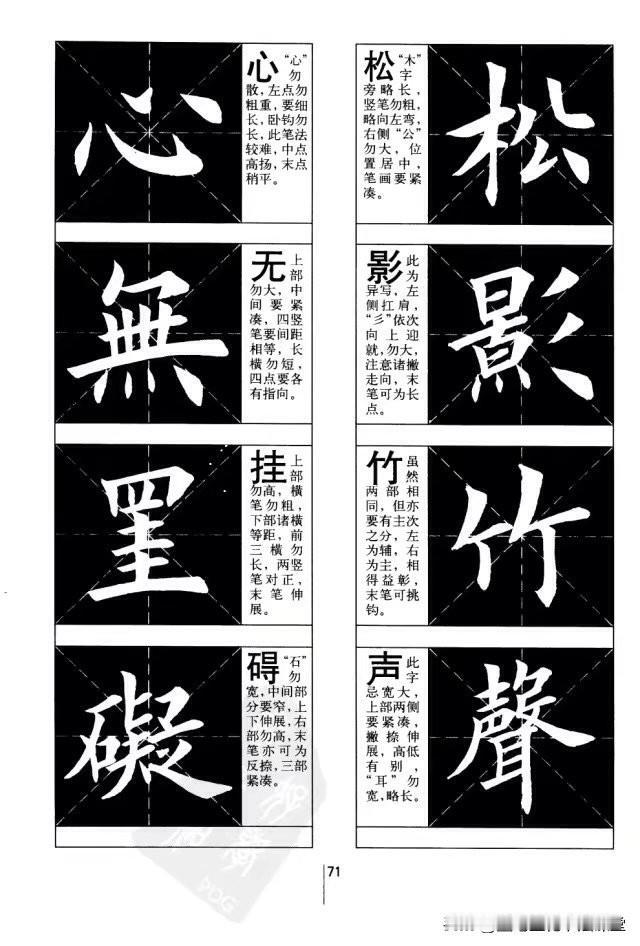 心
心 “心”
勿
散，左点勿
粗重，要细
长，卧钩勿
长，此笔法
较难，中点
高扬，末点
稍平。
無
无 上
部
勿大，中
间要紧
凑，四竖
笔要间距
相等，长
横勿短，
四点要各
有指向。
罣
挂 上
部
勿高，横
笔勿粗，
下部诸横
等距，前
三横勿
长，两竖
笔对正，
末笔伸
展。
礙
碍 “石”
勿
宽，中间部
分要窄，上
下伸展，右
部勿高，末
笔亦可为
反捺，三部
紧凑。
松 “木”
字
旁略长，
竖笔勿粗，
略向左弯，
右侧“公”
勿大，位
置居中，
笔画要紧
凑。
松
影 此
为
异写，左
侧扛肩，
“彡”依次
向上迎
就，勿大，
注意诸撇
走向，末
笔可为长
点。
影
竹 虽
然
两部相
同，但亦
要有主次
之分，左
为辅，右
为主，相
得益彰，
末笔可挑
钩。
竹
声 此
字
忌宽大，
上部两侧
要紧凑，
撇捺伸
展，高低
有别，
“耳”勿
宽，略长。
聲
71